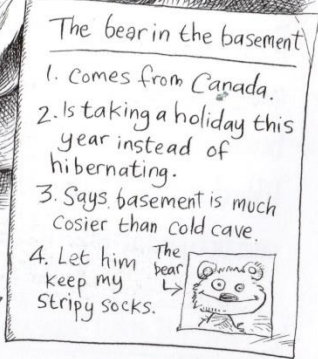 The bear in the basement
1. Comes from Canada.
2. Is taking a holiday this
year instead of
hibernating.
3. Says basement is much
cosier than cold cave.
4. Let him
keep my
stripy socks.
The
bear